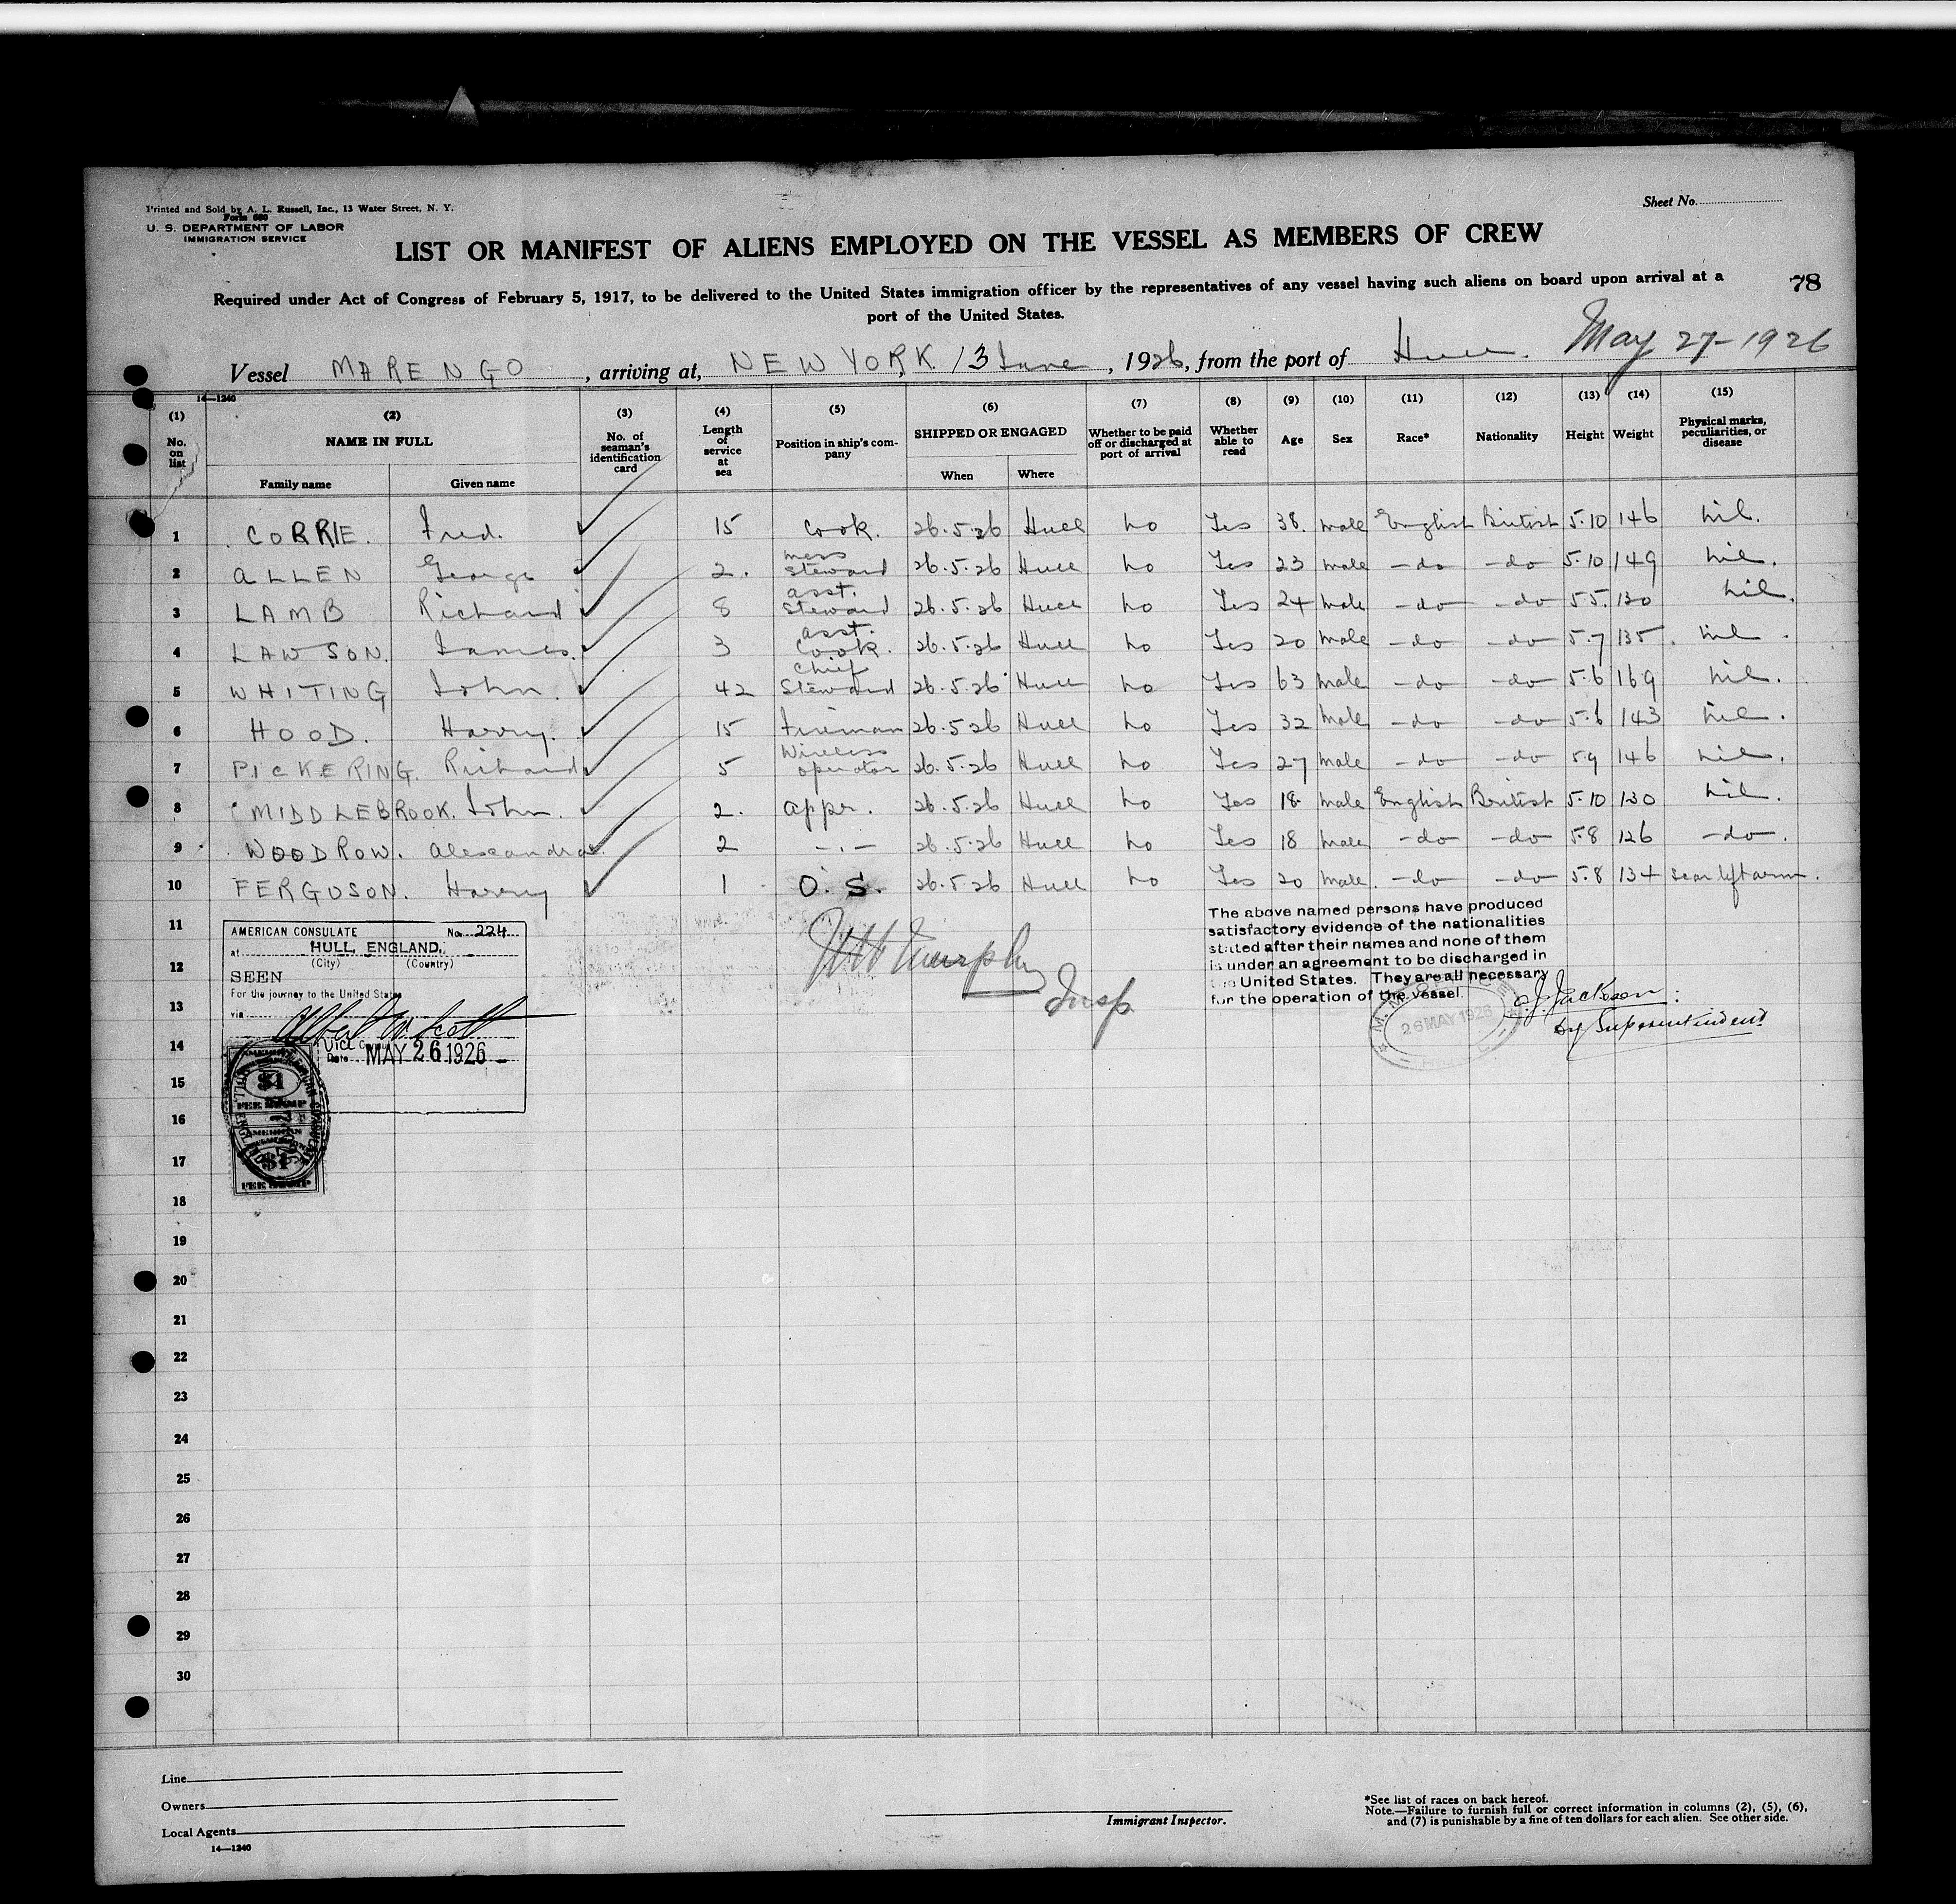 Printed and Sold by A. L. Russell, Inc., 13 Water Street, N. Y.
Form 680
U. S. DEPARTMENT OF LABOR
IMMIGRATION SERVICE
Sheet No.
LIST OR MANIFEST OF ALIENS EMPLOYED ON THE VESSEL AS MEMBERS OF CREW
Required under Act of Congress of February 5, 1917, to be delivered to the United States immigration officer by the representatives of any vessel having such aliens on board upon arrival at a
port of the United States.
78
Vessel MARENGO, arriving at, NEW YORK 13 June, 1926, from the port of Hull. May 27-1926
14—1240
(1) (2) (3) (4) (5) (6) (7) (8) (9) (10) (11) (12) (13) (14) (15)
No. on list NAME IN FULL No. of seaman's identification card Length of service at sea Position in ship's company SHIPPED OR ENGAGED Whether to be paid off or discharged at port of arrival Whether able to read Age Sex Race* Nationality Height Weight Physical marks, peculiarities, or disease
Family name Given name When Where
1 CORRIE. Fred. 15 Cook. 26.5.26 Hull No Yes 38. male English British 5.10 146 nil.
2 ALLEN George 2. mess steward 26.5.26 Hull No Yes 23 male -do- -do- 5.10 149 nil.
3 LAMB Richard 8 asst. steward 26.5.26 Hull No Yes 24 male -do- -do- 5 5. 130 nil.
4 LAWSON. James. 3 asst. cook. 26.5.26 Hull No Yes 20 male -do- -do- 5.7 135. nil.
5 WHITING John. 42 chief Steward 26.5.26 Hull No Yes 63 male -do- -do- 5.6 169 nil.
6 HOOD. Harry. 15 Fireman 26.5 26 Hull No Yes 32 male -do- -do- 5.6 143 nil.
7 PICKERING. Richard 5 Wireless operator 26.5.26 Hull No Yes 27 male -do- -do- 5.9 146 nil.
8 MIDDLEBROOK. John. 2. appr. 26.5.26 Hull No Yes 18 male English British 5.10 130 nil.
9 WOODROW. Alexander 2 -.- 26.5.26 Hull No Yes 18 male -do- -do- 5 8 126 -do-.
10 FERGUSON. Harry 1 O. S. 26.5.26 Hull No Yes 20 male. -do- -do- 5.8 134 scar left arm.
11
12
13
14
15
16
17
18
19
20
21
22
23
24
25
26
27
28
29
30
AMERICAN CONSULATE No. 224
at HULL, ENGLAND.
(City) (Country)
SEEN
For the journey to the United States
via
Albert W. Scott
Vice Consul
Date MAY 26 1926
$1
FEE STAMP
AMERICAN
$1
FEE STAMP
Murphy
Insp
The above named persons have produced
satisfactory evidence of the nationalities
stated after their names and none of them
is under an agreement to be discharged in
the United States. They are all necessary
for the operation of the vessel.
26 MAY 1926
J. Jackson:
by Superintendent
Line
Owners
Local Agents
14—1240
Immigrant Inspector.
*See list of races on back hereof.
Note.—Failure to furnish full or correct information in columns (2), (5), (6),
and (7) is punishable by a fine of ten dollars for each alien. See other side.